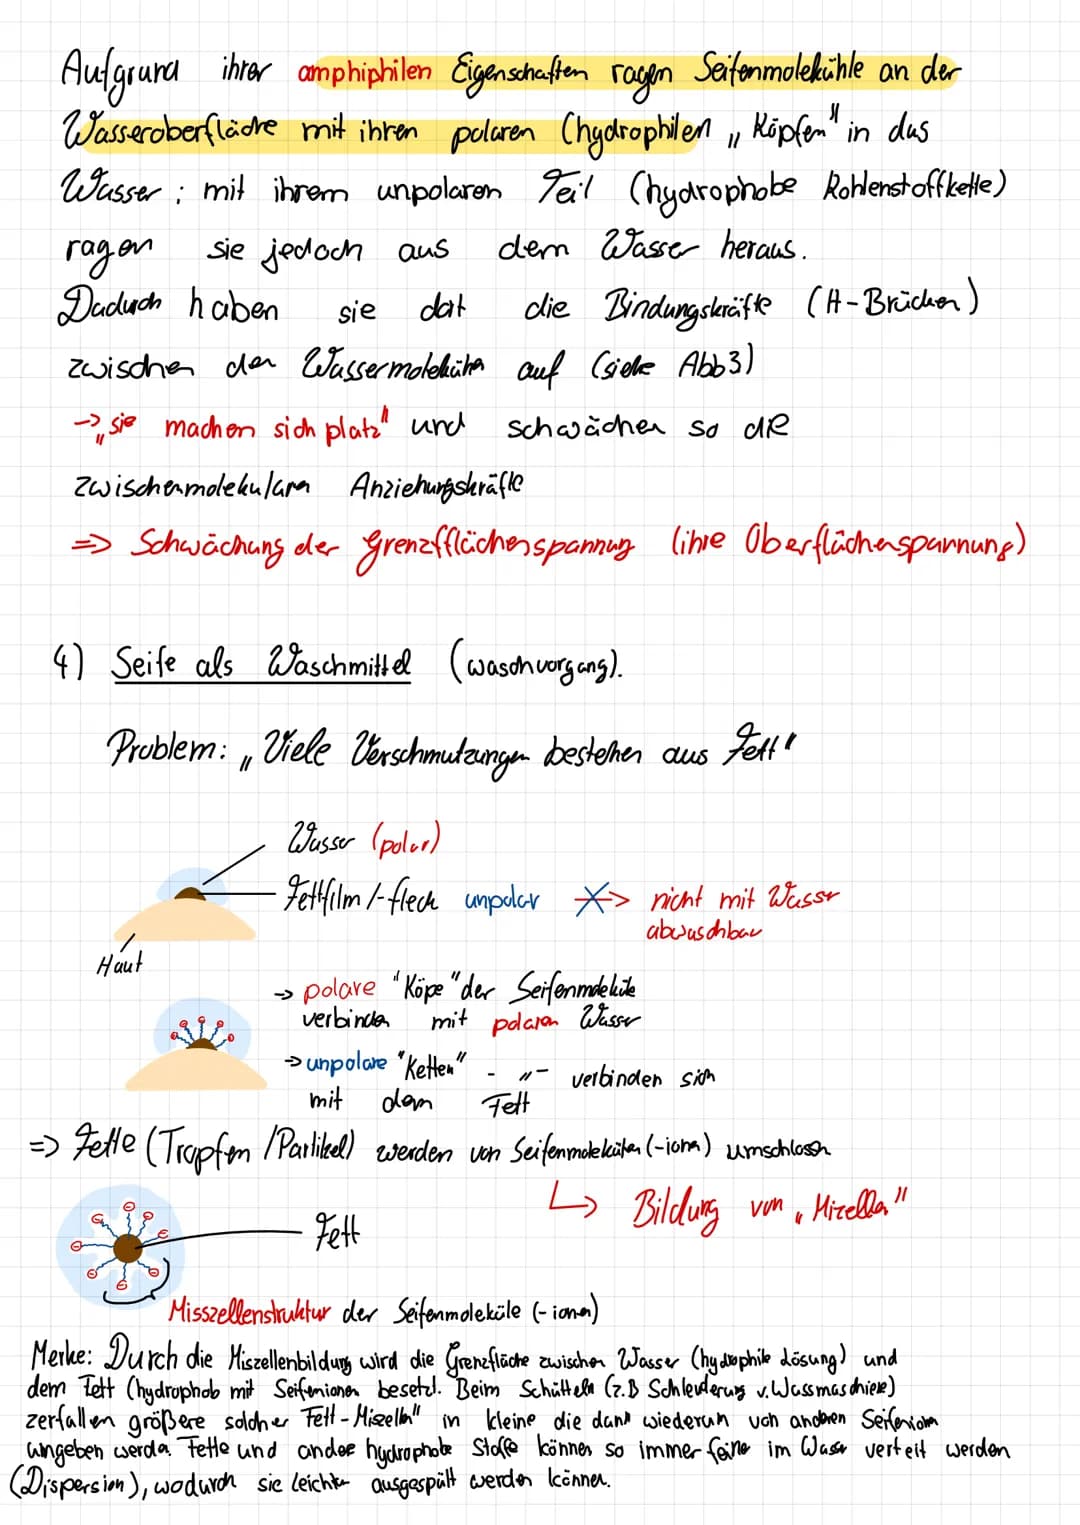 Aufgrund ihrer amphiphilen Eigenschaften ragen Seifenmolekühle an der
Wasseroberfläche mit ihren polaren (hydrophilen „Köpfen" in das
Wasser ; mit ihrem unpolaren Teil (hydrophobe Kohlenstoffkette)
ragen sie jedoch aus dem Wasser heraus.
Daduch haben sie dort die Bindungskräfte (H-Brücken)
zwischen den Wassermolekühen auf (siehe Abb3)
-> „sie machen sich platz" und schwächen so die
zwischenmolekularen Anziehungskräfte
=> Schwächung der Grenzfflächenspannung (ihre Oberflächenspannung)
4) Seife als Waschmittel (waschvorgang).
Problem: „Viele Verschmutzungen bestehen aus Fett"
Wasser (polar)
Fettfilm /-fleck unpolar -> nicht mit Wasser
abwaschbar
Haut
-> polare "Köpe" der Seifenmoleküle
verbinden mit polaren Wasser
-> unpolare "Ketten" - "- verbinden sich
mit dem Fett
=> Fette (Tropfen /Partikel) werden von Seifenmoleküten (-ionen) umschlossen
↳ Bildung von „Mizellen"
Fett
Misszellenstruktur der Seifenmoleküle (-ionen)
Merke: Durch die Miszellenbildung wird die Grenzfläche zwischen Wasser (hydrophile Lösung) und
dem Fett (hydrophob mit Seifenionen besetzt. Beim Schütteln (z.B Schleuderung v. Wassmaschiene)
zerfallen größere solcher Fett-Mizellen" in kleine die dann wiederum von anderen Seifenionen
umgeben werden. Fette und andere hydrophobe Stoffe können so immer feiner im Wasser verteit werden
(Dispersion), wodurch sie leichter ausgespült werden können.